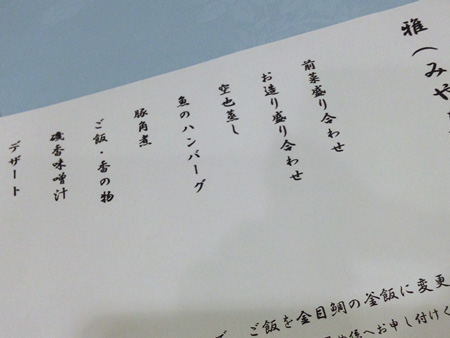 雅(みや
前菜盛り合わせ
お造り盛り合わせ
空也蒸し
魚のハンバーグ
豚角煮
ご飯・香の物
磯香味噌汁
デザート
ご飯を金目鯛の釜飯に変更
係へお申し付けく